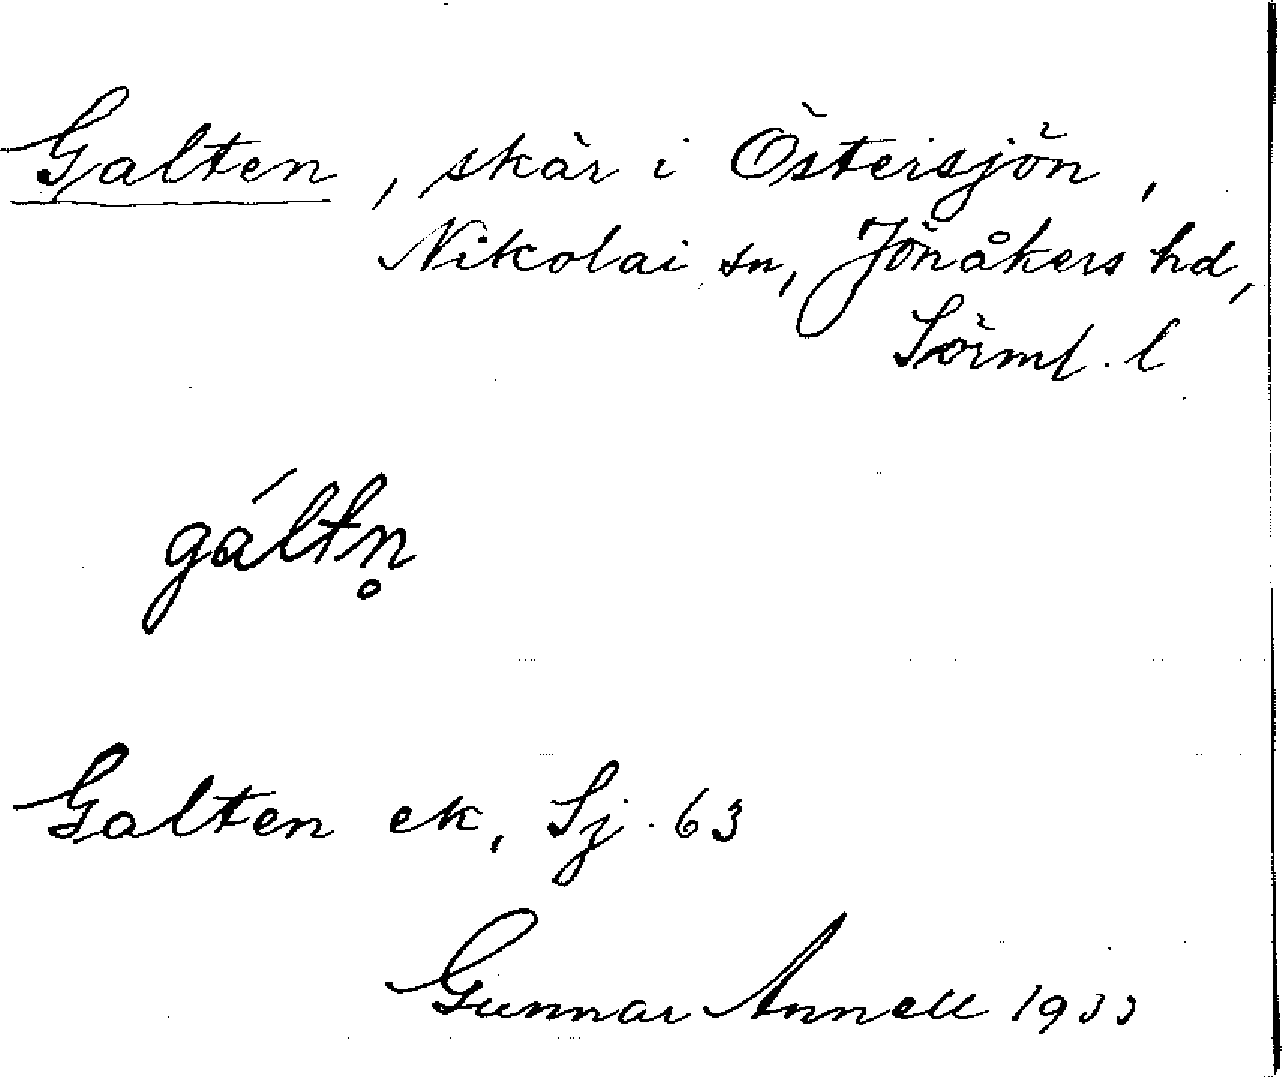 Galten, skär i Östersjön,
Nikolai sn, Jönåkers hd,
Sörml. l
gáltn̥
Galten ek, Sj. 63
Gunnar Annell 1933